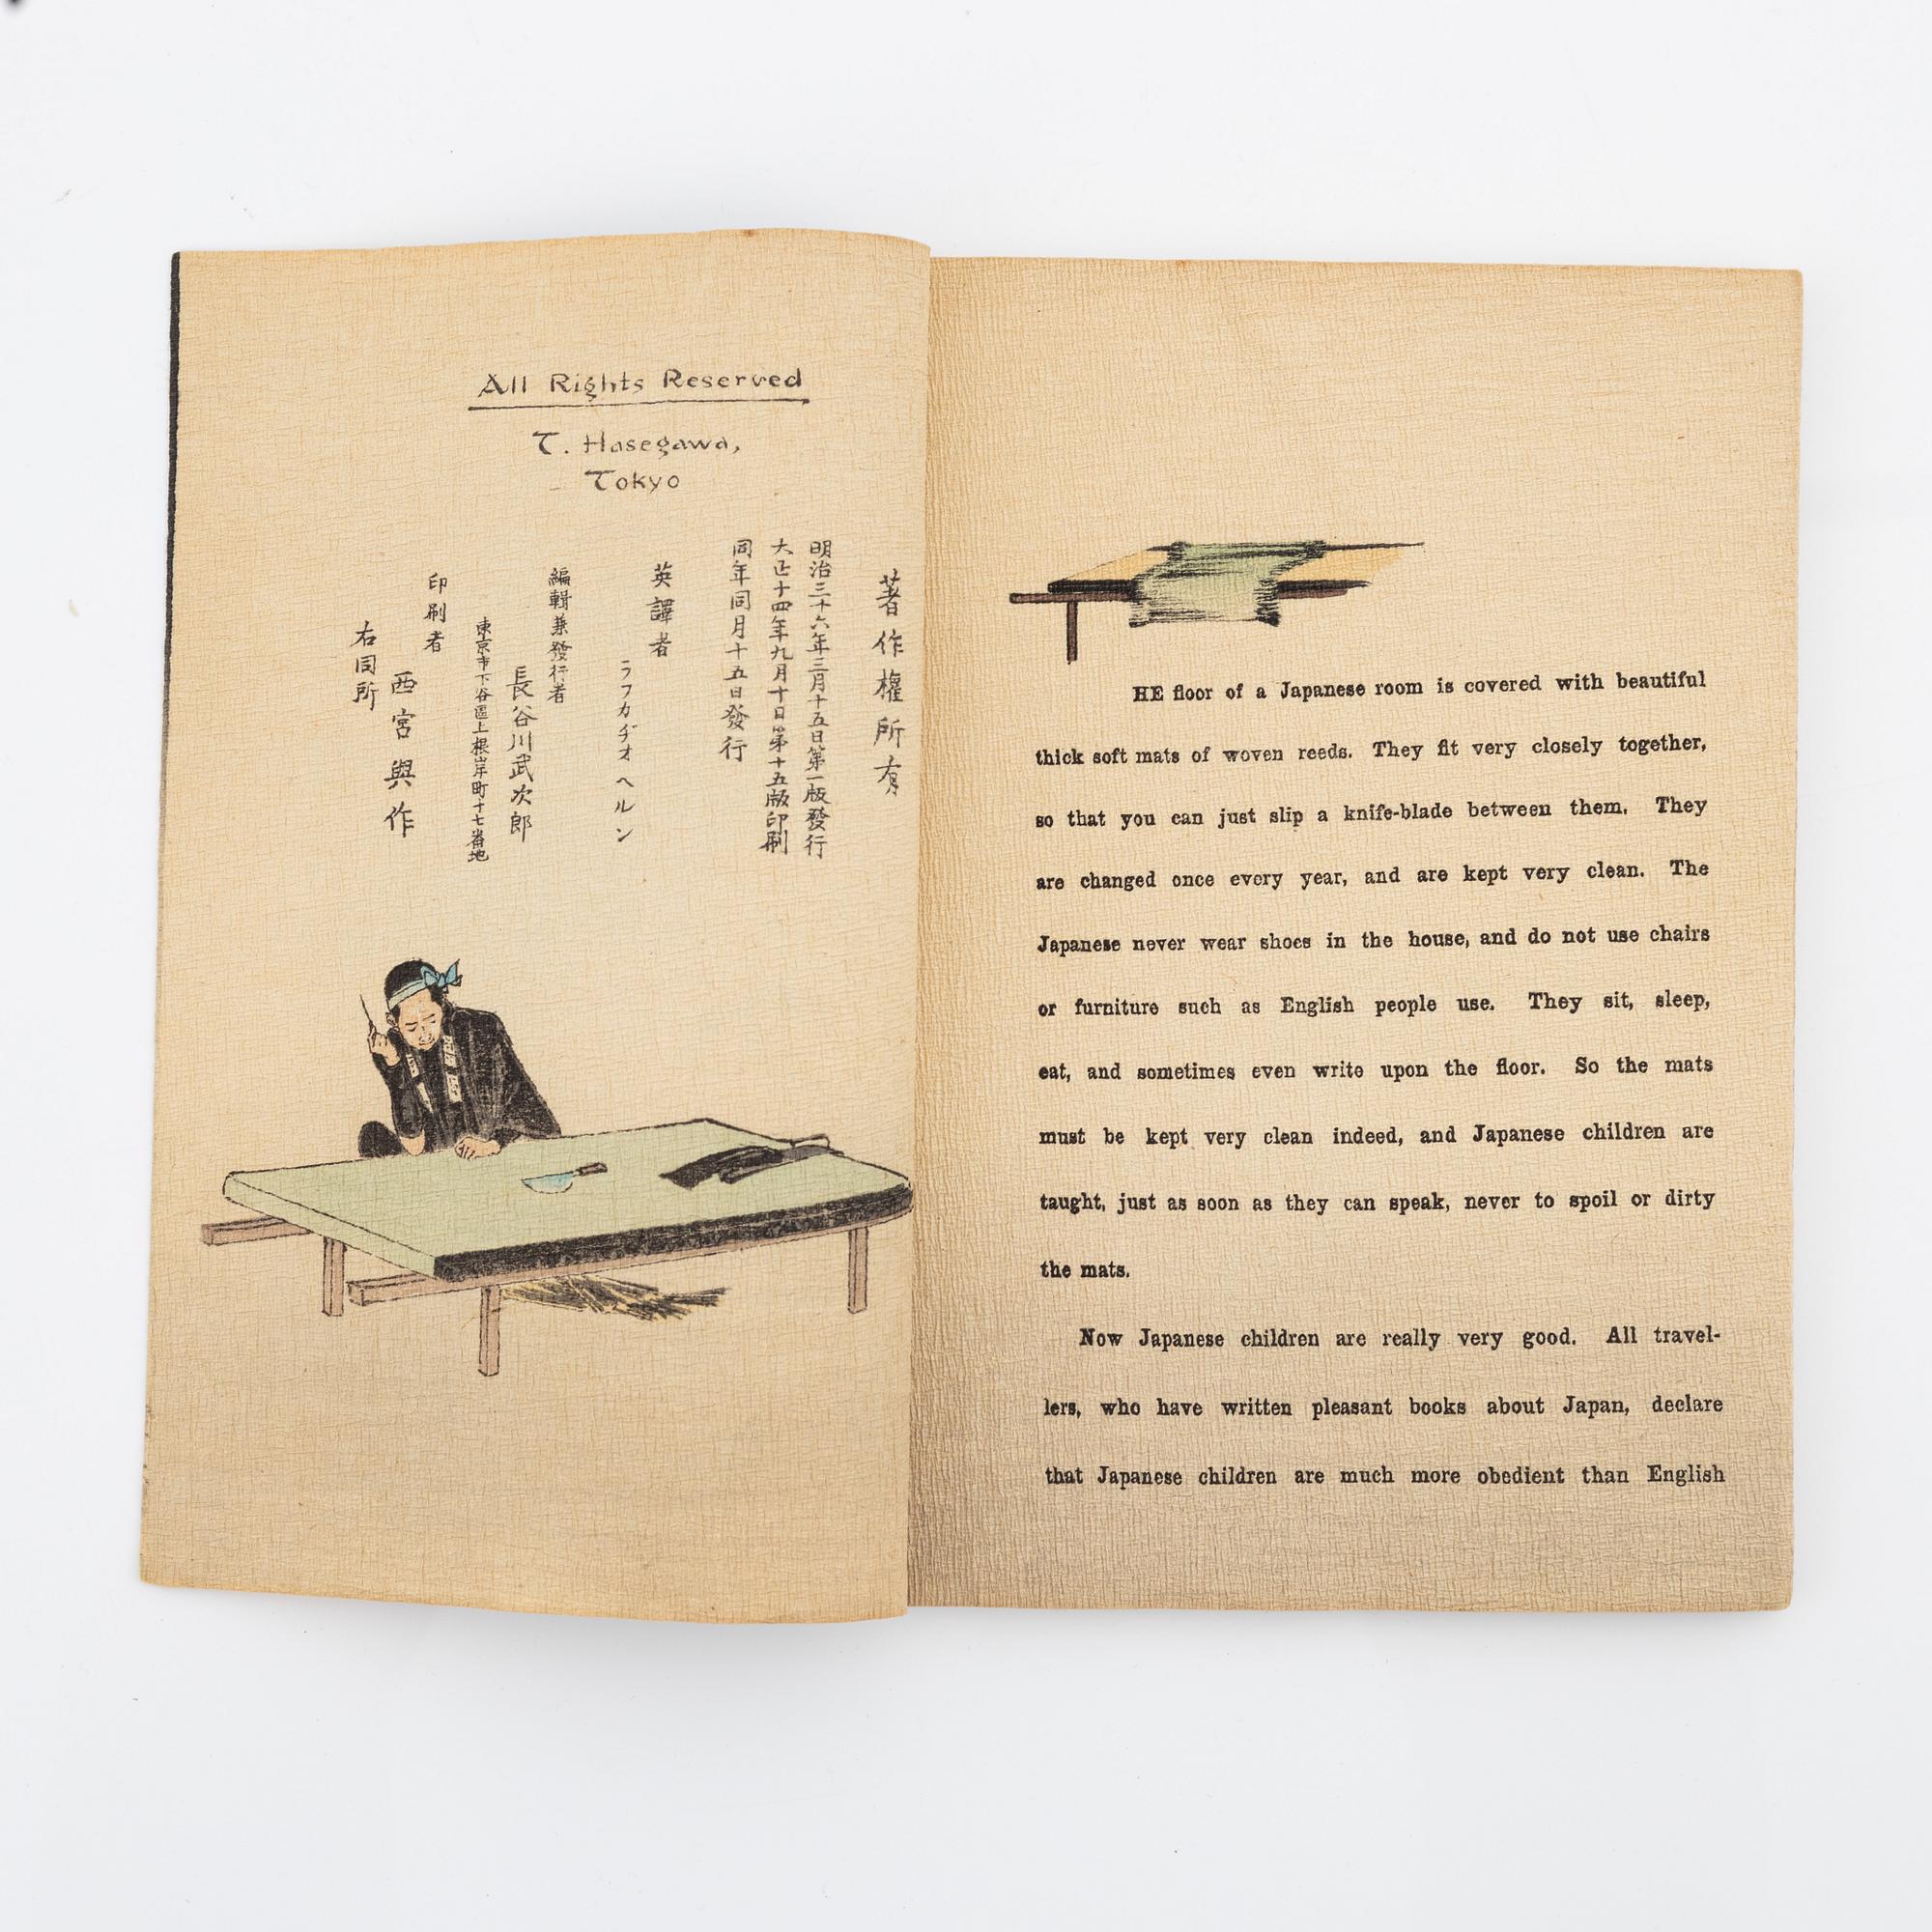 All Rights Reserved
T. Hasegawa,
Tokyo
著作權所有
明治三十六年三月十五日第一版發行
大正十四年九月十日第十五版印刷
同年同月十五日發行
英譯者
ラフカヂオヘルン
編輯兼發行者
長谷川武次郎
東京市下谷區上根岸町十七番地
印刷者
西宮與作
右同所
HE floor of a Japanese room is covered with beautiful
thick soft mats of woven reeds. They fit very closely together,
so that you can just slip a knife-blade between them. They
are changed once every year, and are kept very clean. The
Japanese never wear shoes in the house, and do not use chairs
or furniture such as English people use. They sit, sleep,
eat, and sometimes even write upon the floor. So the mats
must be kept very clean indeed, and Japanese children are
taught, just as soon as they can speak, never to spoil or dirty
the mats.
Now Japanese children are really very good. All travel-
lers, who have written pleasant books about Japan, declare
that Japanese children are much more obedient than English